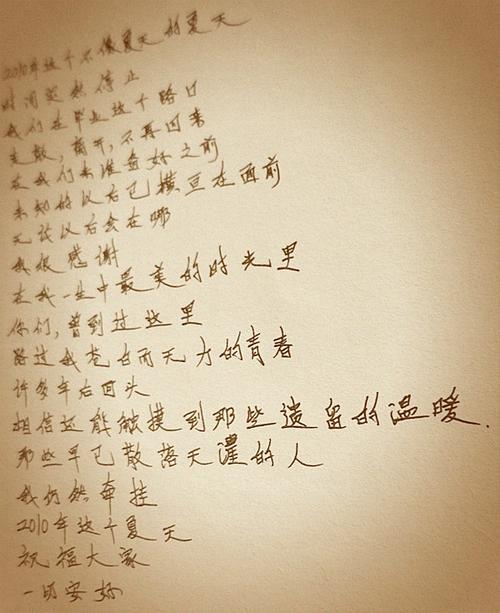 2010年这个不像夏天的夏天
时间突然停止
我们在毕业这个路口
走散，离开，不再回来
在我们未准备好之前
未知的以后已横亘在面前
无论以后会在哪
我很感谢
在我一生中最美的时光里
你们，曾到过这里
路过我苍白而无力的青春
许多年后回头
相信还能触摸到那些遗留的温暖.
那些早已散落天涯的人
我仍然牵挂
2010年这个夏天
祝福大家
一切安好